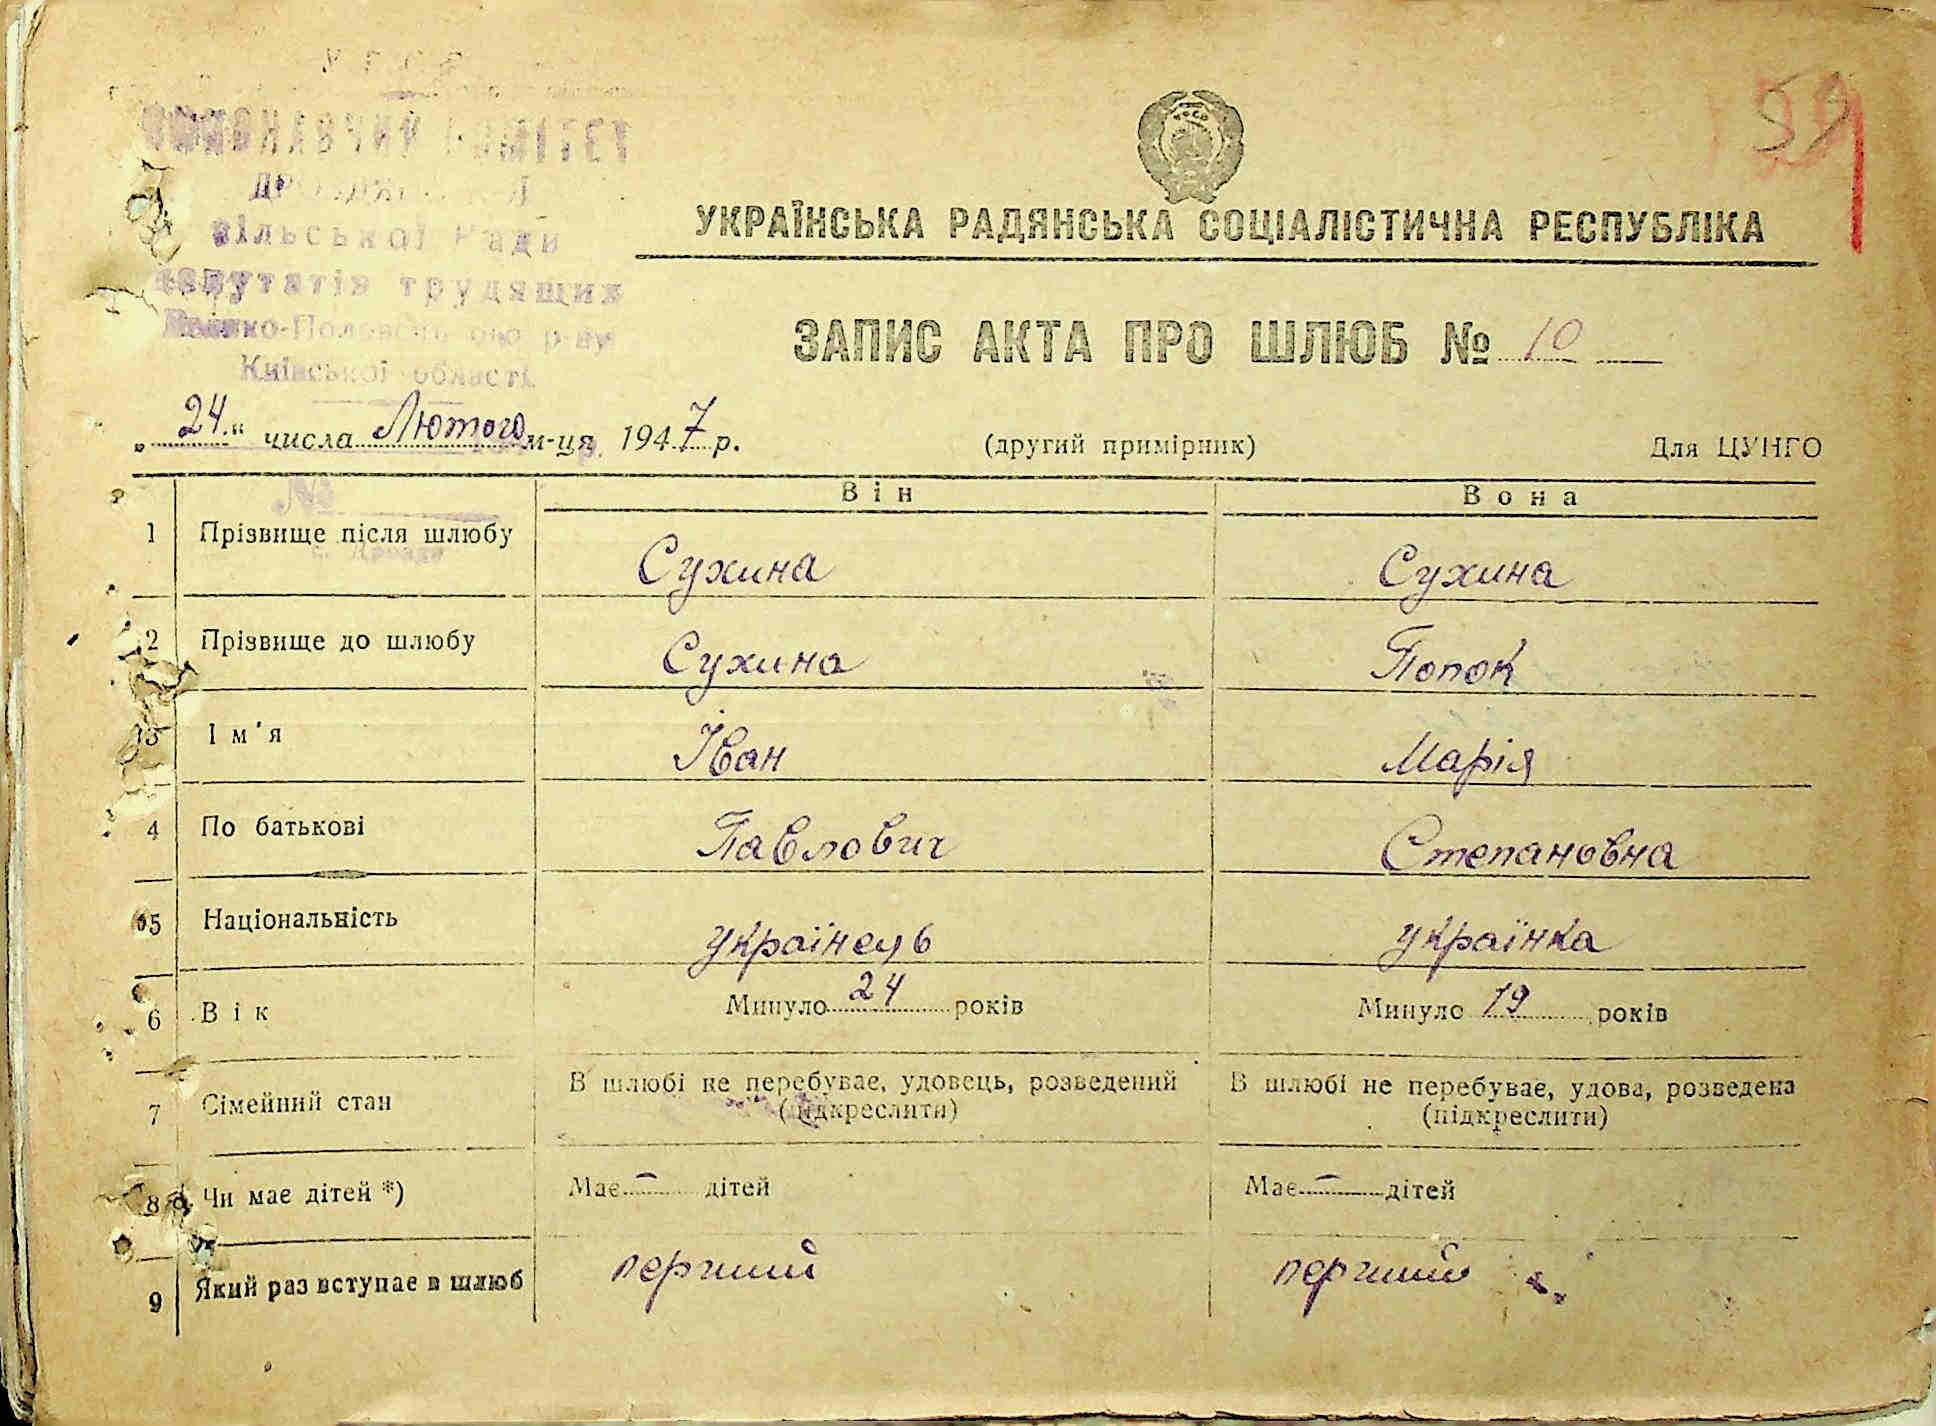 УРСР
ВИКОНАВЧИЙ КОМІТЕТ
сільської Ради
депутатів трудящих
Київської області
59
УКРАЇНСЬКА РАДЯНСЬКА СОЦІАЛІСТИЧНА РЕСПУБЛІКА
ЗАПИС АКТА ПРО ШЛЮБ № 10
„24“ числа Лютого м-ця 1947 р. (другий примірник) Для ЦУНГО
№
Він Вона
1 Прізвище після шлюбу Сухина Сухина
2 Прізвище до шлюбу Сухина Попок
3 Ім'я Іван Марія
4 По батькові Павлович Степановна
5 Національність українець українка
6 Вік Минуло 24 років Минуло 19 років
7 Сімейний стан В шлюбі не перебуває, удовець, розведений В шлюбі не перебуває, удова, розведена
(підкреслити) (підкреслити)
8 Чи має дітей *) Має – дітей Має – дітей
9 Який раз вступає в шлюб перший перший